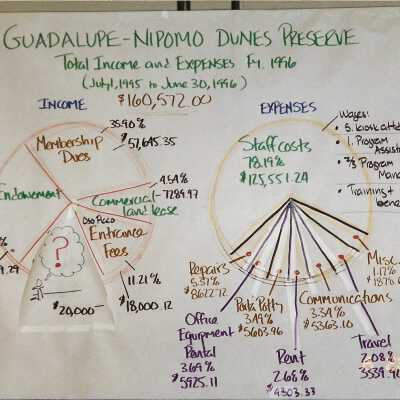 GUADALUPE-NIPOMO DUNES PRESERVE
Total Income and EXPENSES Fy. 1996
(July 1, 1995 to June 30, 1996)
$160,572.00
INCOME
35.90%
$57,645.35
Membership
Dues
4.54%
7289.47
Commercial
land lease
Endowment
Entrance
Fees
11.21%
$18,000.12
?
$20,000-
EXPENSES
Staff costs
78.19%
$125,551.24
Wages:
• 5. kiosk
• 1. Program
• Program
• Training &
Repairs
5.37%
$8622.72
Office
Equipment
Rental
3.69%
$5925.11
Porta Potty
3.49%
$5603.96
Rent
2.68%
$4303.33
Communications
3.34%
$5363.10
Travel
2.08%
Misc.
1.17%